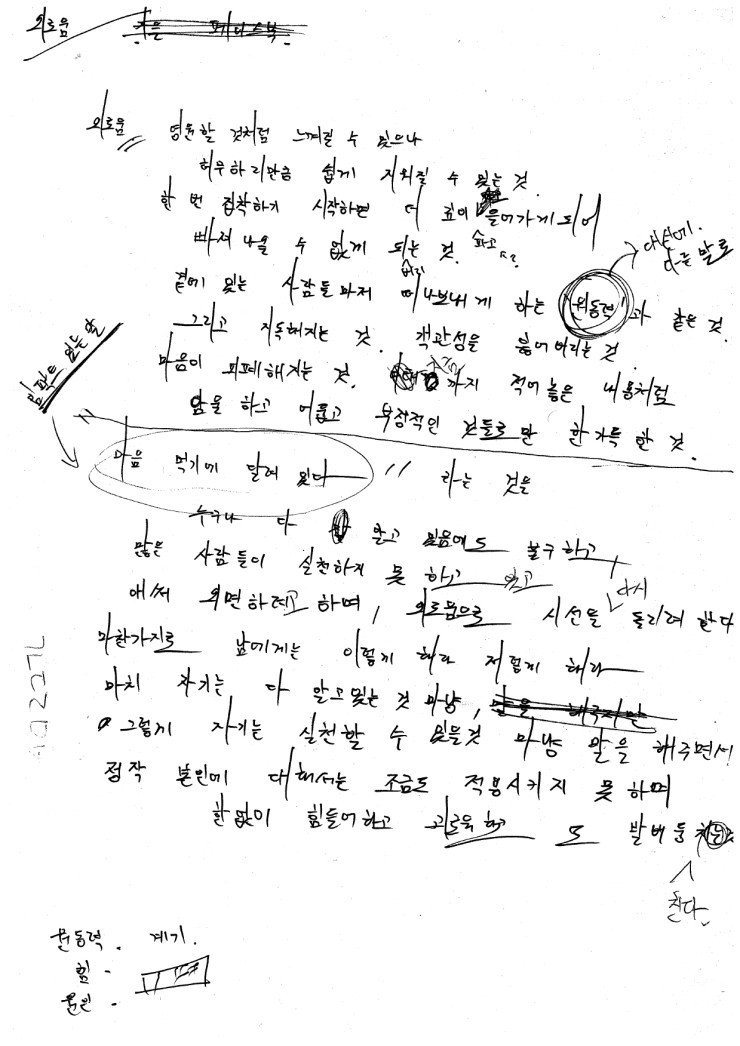 외로움
외로움 영원할 것처럼 느껴질 수 있으나
허무하리만큼 쉽게 지워질 수 있는 것.
한 번 집착하기 시작하면 더 깊이 들어가게 되어
빠져 나올 수 없게 되는 것.
대신에
다른 말로
곁에 있는 사람들마저 떠나보내게 하는 원동력과 같은 것.
그리고 지독해지는 것. 객관성을 잃어버리는 것.
마음이 피폐해지는 것. 까지 적어 놓은 내용처럼
암울하고 어둡고 부정적인 것들로만 한가득 한 것.
마음 먹기에 달려 있다 라는 것을
누구나 다 알고 있음에도 불구하고
많은 사람들이 실천하지 못 하고 있고
다시
애써 외면하려고 하며, 외로움으로 시선을 돌리려 한다
마찬가지로 남에게는 이렇게 해라 저렇게 해라
마치 자기는 다 알고있는 것 마냥,
그렇게 자기는 실천할 수 있을것 마냥 말을 해주면서
정작 본인에 대해서는 조금도 적용시키지 못 하며
한없이 힘들어하고 괴로워 하고 또 발버둥
친다.
원동력. 계기.
힘.
원인.